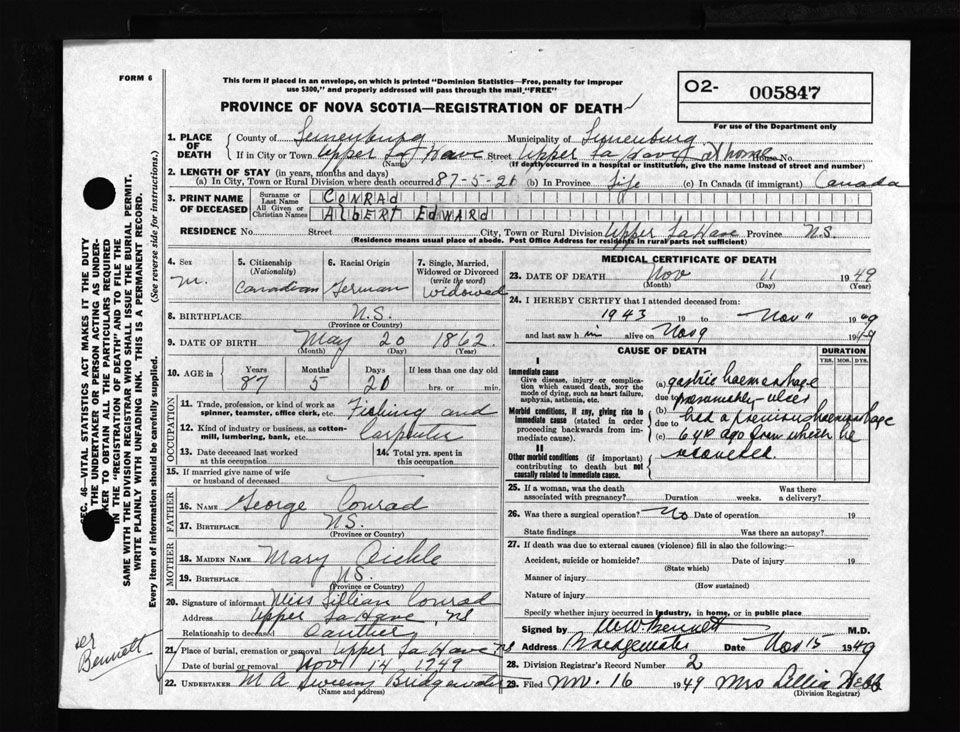 FORM 6
This form if placed in an envelope, on which is printed "Dominion Statistics—Free, penalty for improper
use $300," and properly addressed will pass through the mail "FREE"
PROVINCE OF NOVA SCOTIA—REGISTRATION OF DEATH
02- 005847
For use of the Department only
1. PLACE OF DEATH County of Lunenburg Municipality of Lunenburg
If in City or Town Upper La Have Street Upper La Have at home House No.
(Name) (If death occurred in a hospital or institution, give the name instead of street and number)
2. LENGTH OF STAY (in years, months and days)
(a) In City, Town or Rural Division where death occurred 87-5-20 (b) In Province Life (c) In Canada (if immigrant) Canada
3. PRINT NAME OF DECEASED Surname or Last Name CONRAD
All Given or Christian Names AlBERT EdWARd
RESIDENCE No. Street City, Town or Rural Division Upper La Have Province N.S.
(Residence means usual place of abode. Post Office Address for residents in rural parts not sufficient)
4. Sex M.
5. Citizenship (Nationality) Canadian
6. Racial Origin German
7. Single, Married, Widowed or Divorced (write the word) Widowed
8. BIRTHPLACE N.S.
(Province or Country)
9. DATE OF BIRTH May 20 1862
(Month) (Day) (Year)
10. AGE IS Years 87 Months 5 Days 20 If less than one day old
hrs. or min.
OCCUPATION
11. Trade, profession, or kind of work as spinner, teamster, office clerk, etc. Fishing and
12. Kind of industry or business, as cotton-mill, lumbering, bank, etc. Carpenter
13. Date deceased last worked at this occupation 14. Total yrs. spent in this occupation
15. If married give name of wife or husband of deceased
FATHER
16. NAME George Conrad
17. BIRTHPLACE N.S.
(Province or Country)
MOTHER
18. MAIDEN NAME Mary
19. BIRTHPLACE N.S.
(Province or Country)
20. Signature of informant Miss Lillian Conrad
Address Upper La Have, NS
Relationship to deceased
21. Place of burial, cremation or removal Upper La Have NS
Date of burial or removal Nov 14 1949
22. UNDERTAKER M A Bridgewater
(Name and address)
MEDICAL CERTIFICATE OF DEATH
23. DATE OF DEATH Nov 11 1949
(Month) (Day) (Year)
24. I HEREBY CERTIFY that I attended deceased from:
1943 19 to Nov 11 1949
and last saw him alive on Nov 9 1949
CAUSE OF DEATH DURATION
YRS. MOS. DYS.
I
Immediate cause
Give disease, injury or complication which caused death, not the mode of dying, such as heart failure, asphyxia, asthenia, etc.
(a) gastric haemorrhage
due to presumably ulcer
Morbid conditions, if any, giving rise to immediate cause (stated in order proceeding backwards from immediate cause).
(b) had a previous haemorrhage
due to
(c) 6 yrs ago from which he
recovered.
II
Other morbid conditions (if important) contributing to death but not causally related to immediate cause.
25. If a woman, was the death associated with pregnancy? Duration weeks. Was there a delivery?
26. Was there a surgical operation? No Date of operation 19
State findings Was there an autopsy?
27. If death was due to external causes (violence) fill in also the following:—
Accident, suicide or homicide? Date of injury 19
(State which)
Manner of injury
(How sustained)
Nature of injury
Specify whether injury occurred in industry, in home, or in public place
Signed by Bennett M.D.
Address Bridgewater Date Nov 15 1949
28. Division Registrar's Record Number 2
29. Filed Nov. 16 1949 Mrs Lillia Webb
(Division Registrar)
SEC. 46—VITAL STATISTICS ACT MAKES IT THE DUTY
THE UNDERTAKER OR PERSON ACTING AS UNDER-
KER TO OBTAIN ALL THE PARTICULARS REQUIRED
IN THE "REGISTRATION OF DEATH" AND TO FILE THE
SAME WITH THE DIVISION REGISTRAR WHO SHALL ISSUE THE BURIAL PERMIT.
WRITE PLAINLY WITH UNFADING INK. THIS IS A PERMANENT RECORD.
Every item of information should be carefully supplied. (See reverse side for instructions.)
Bennett